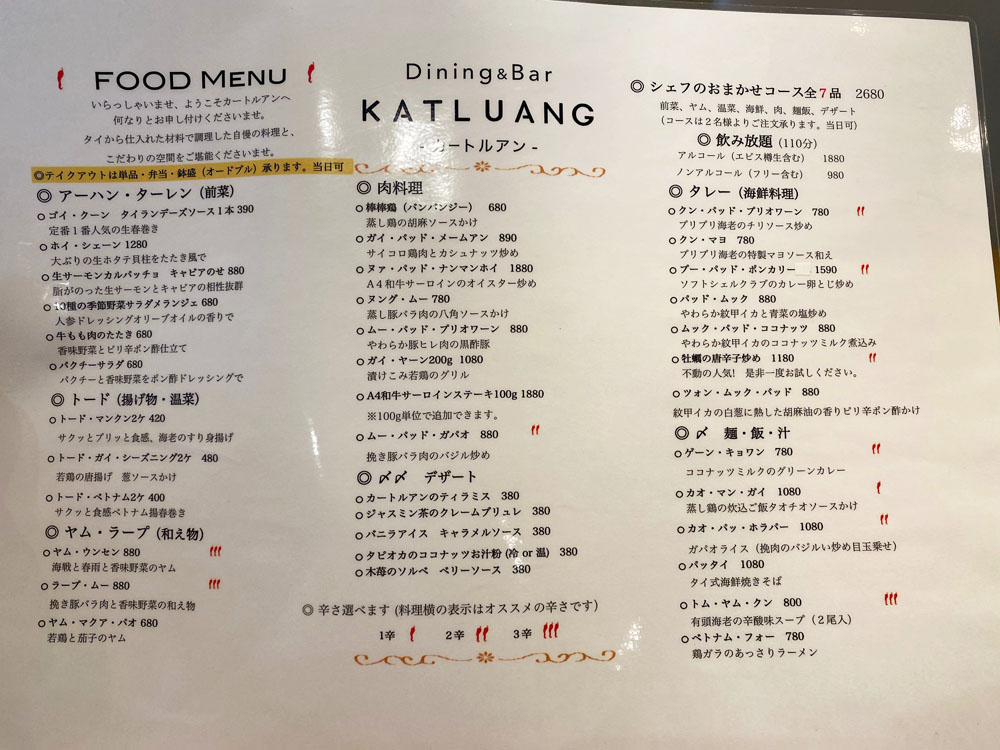 FOOD MENU
いらっしゃいませ、ようこそカートルアンへ
何なりとお申し付けくださいませ。
タイから仕入れた材料で調理した自慢の料理と、
こだわりの空間をご堪能くださいませ。
◎テイクアウトは単品・弁当・鉢盛（オードブル）承ります。当日可
◎ アーハン・ターレン（前菜）
○ ゴイ・クーン タイランデーズソース1本 390
定番１番人気の生春巻き
○ ホイ・シェーン 1280
大ぶりの生ホタテ貝柱をたたき風で
○ 生サーモンカルパッチョ キャビアのせ 880
脂がのった生サーモンとキャビアの相性抜群
○ 10種の季節野菜サラダメランジェ 680
人参ドレッシングオリーブオイルの香りで
○ 牛もも肉のたたき 680
香味野菜とピリ辛ポン酢仕立て
○ パクチーサラダ 680
パクチーと香味野菜をポン酢ドレッシングで
◎ トード（揚げ物・温菜）
○ トード・マンクン2ケ 420
サクッとプリッと食感、海老のすり身揚げ
○ トード・ガイ・シーズニング2ケ 480
若鶏の唐揚げ 葱ソースかけ
○ トード・ベトナム2ケ 400
サクッと食感ベトナム揚春巻き
◎ ヤム・ラープ（和え物）
○ ヤム・ウンセン 880
海戦と春雨と香味野菜のヤム
○ ラープ・ムー 880
挽き豚バラ肉と香味野菜の和え物
○ ヤム・マクア・パオ 680
若鶏と茄子のヤム
Dining&Bar
KATLUANG
- カートルアン -
◎ 肉料理
○ 棒棒鶏（バンバンジー） 680
蒸し鶏の胡麻ソースかけ
○ ガイ・パッド・メームアン 890
サイコロ鶏肉とカシュナッツ炒め
○ ヌァ・パッド・ナンマンホイ 1880
A４和牛サーロインのオイスター炒め
○ ヌング・ムー 780
蒸し豚バラ肉の八角ソースかけ
○ ムー・パッド・プリオワーン 880
やわらか豚ヒレ肉の黒酢豚
○ ガイ・ヤーン200g 1080
漬けこみ若鶏のグリル
○ A4和牛サーロインステーキ100g 1880
※100g単位で追加できます。
○ ムー・パッド・ガパオ 880
挽き豚バラ肉のバジル炒め
◎ 〆〆 デザート
○ カートルアンのティラミス 380
○ ジャスミン茶のクレームブリュレ 380
○ バニラアイス キャラメルソース 380
○ タピオカのココナッツお汁粉 (冷 or 温) 380
○ 木苺のソルベ ベリーソース 380
◎ 辛さ選べます (料理横の表示はオススメの辛さです)
1辛 2辛 3辛
◎ シェフのおまかせコース全７品 2680
前菜、ヤム、温菜、海鮮、肉、麺飯、デザート
（コースは２名様よりご注文承ります。当日可）
◎ 飲み放題（110分）
アルコール（エビス樽生含む） 1880
ノンアルコール（フリー含む） 980
◎ タレー（海鮮料理）
○ クン・パッド・プリオワーン 780
プリプリ海老のチリソース炒め
○ クン・マヨ 780
プリプリ海老の特製マヨソース和え
○ プー・パッド・ポンカリー 1590
ソフトシェルクラブのカレー卵とじ炒め
○ パッド・ムック 880
やわらか紋甲イカと青菜の塩炒め
○ ムック・パッド・ココナッツ 880
やわらか紋甲イカのココナッツミルク煮込み
○ 牡蠣の唐辛子炒め 1180
不動の人気! 是非一度お試しください。
○ ツォン・ムック・パッド 880
紋甲イカの白葱に熱した胡麻油の香りピリ辛ポン酢かけ
◎ 〆 麺・飯・汁
○ ゲーン・キョワン 780
ココナッツミルクのグリーンカレー
○ カオ・マン・ガイ 1080
蒸し鶏の炊込ご飯タオチオソースかけ
○ カオ・パッ・ホラバー 1080
ガパオライス（挽肉のバジルい炒め目玉乗せ）
○ パッタイ 1080
タイ式海鮮焼きそば
○ トム・ヤム・クン 800
有頭海老の辛酸味スープ（２尾入）
○ ベトナム・フォー 780
鶏ガラのあっさりラーメン